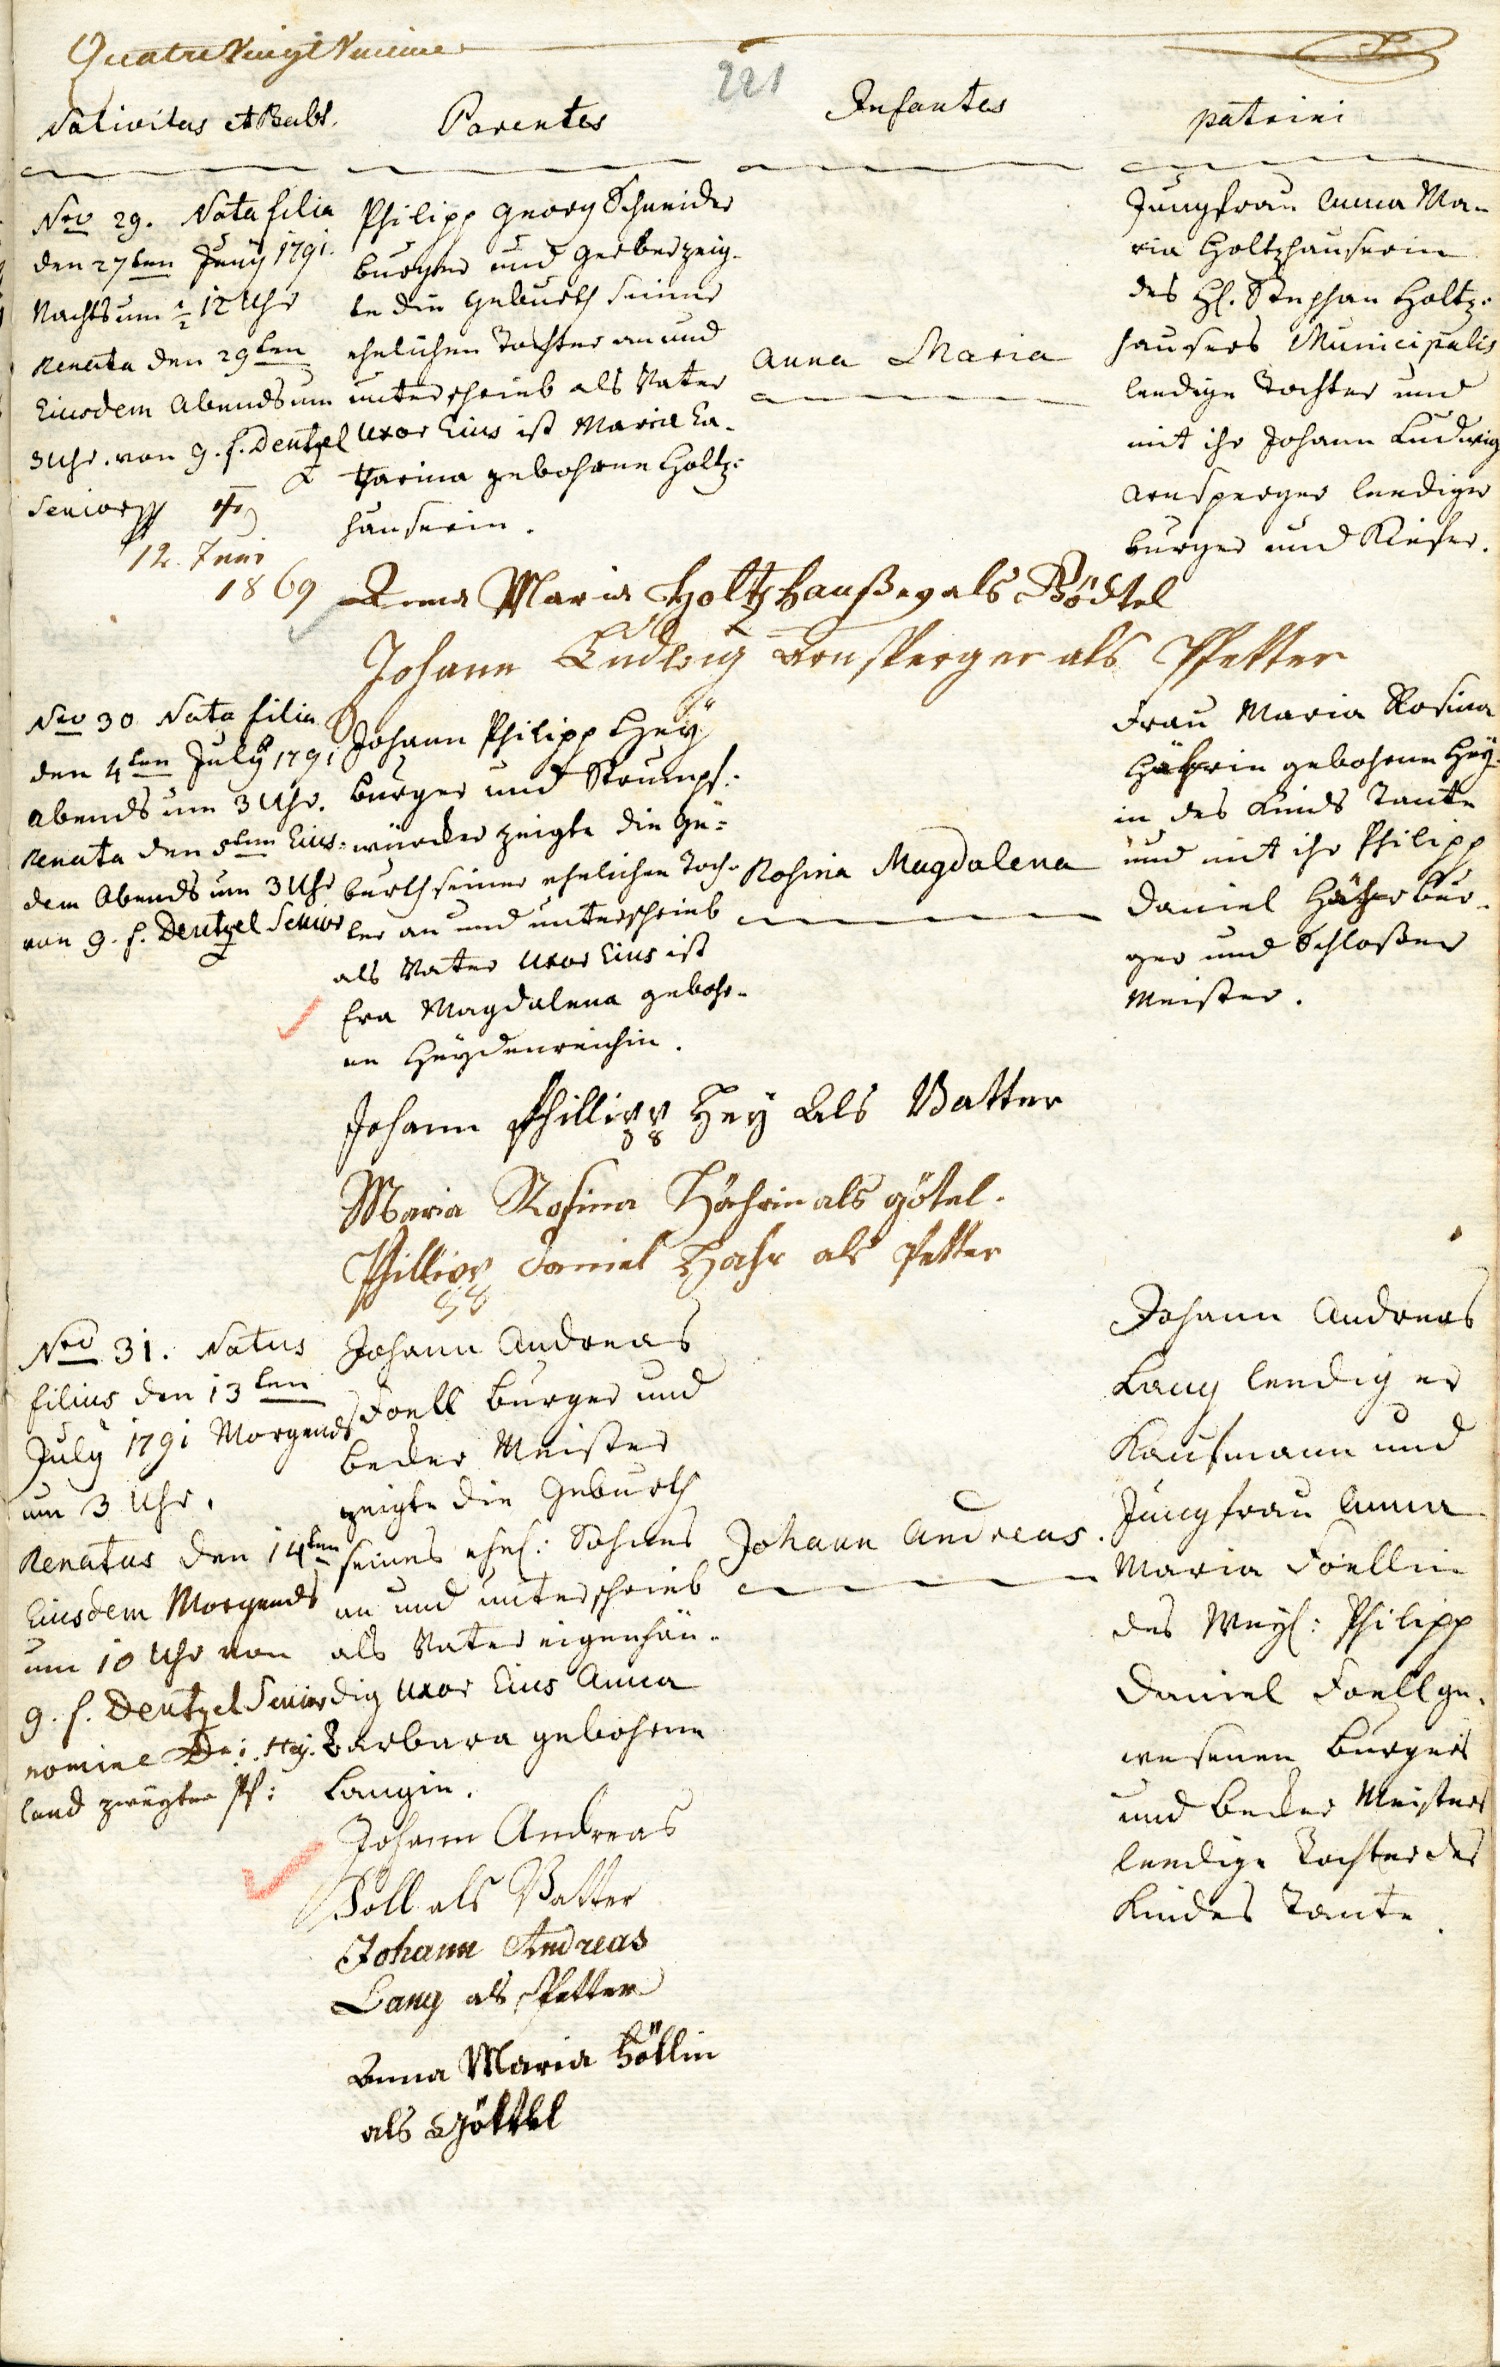 Quatre Vingt Unieme
221
Nativitas et Babt.
Parentes
Infantes
patrini
Nro 29. Nata filia
den 27ten Juny 1791.
Nachts um ½ 12 Uhr
Renata den 29ten
Eiusdem Abends um
3 Uhr. von g. f. Dentzel
Senior
†
12. Juni
1869
Philipp Georg Schneider
burger und Gerber zeig-
te die Geburth seiner
ehelichen Tochter an und
unterschrieb als Vater
Uxor Eius ist Maria Ca-
tharina gebohrne Holtz-
häuserin.
Anna Maria
Jungfrau Anna Ma-
ria Holtzhauserin
des H. Stephan Holtz-
hausers Municipalis
leedige Tochter und
mit ihr Johann Ludwig
Arnsperger leediger
burger und Kiefer.
Anna Maria Holtzhaußer als Gödtel
Johann Ludwig Arnsperger als Pfetter
Nro 30 Nata filia
den 4ten July 1791
Abends um 3 Uhr.
Renata den 5ten Eius-
dem Abends um 3 Uhr
von g. f. Dentzel Senior
Johann Philipp Hey
burger und Strumpf-
würcker zeigte die Ge-
burth seiner ehelichen Toch-
ter an und unterschrieb
als Vater Uxor Eius ist
Eva Magdalena gebohr-
ne Heydenreichin.
Rosina Magdalena
Frau Maria Rosina
Hährin gebohrne Hey-
in des Kinds Tante
und mit ihr Philipp
Daniel Hähr bur-
ger und Schloßer
Meister.
Johann Phillipp Hey Als Vatter
Maria Rosina Hährin als götel.
Phillipp Daniel Hahr als Petter
Nro 31. Natus
filius den 13ten
July 1791 Morgends
um 3 Uhr.
Renatus den 14ten
Eiusdem Morgends
um 10 Uhr von
g. f. Dentzel Senior
nomine Dni. Hey-
land zweyter Pf:
Johann Andreas
Foell burger und
becker Meister
zeigte die Geburth
seines ehel: Sohnes
an und unterschrieb
als Vater eigenhän-
dig Uxor Eius Anna
Barbara gebohrne
Langin.
Johann Andreas
Johann Andreas
Lang leediger
Kaufmann und
Jungfrau Anna
Maria Foellin
des Weyl: Philipp
Daniel Foell ge-
wesenen burgers
und becker Meisters
leedige Tochter des
Kindes Tante.
Johann Andreas
Föll als Vatter
Johann Andreas
Lang als Pfetter
Anna Maria Föllin
als Göttel